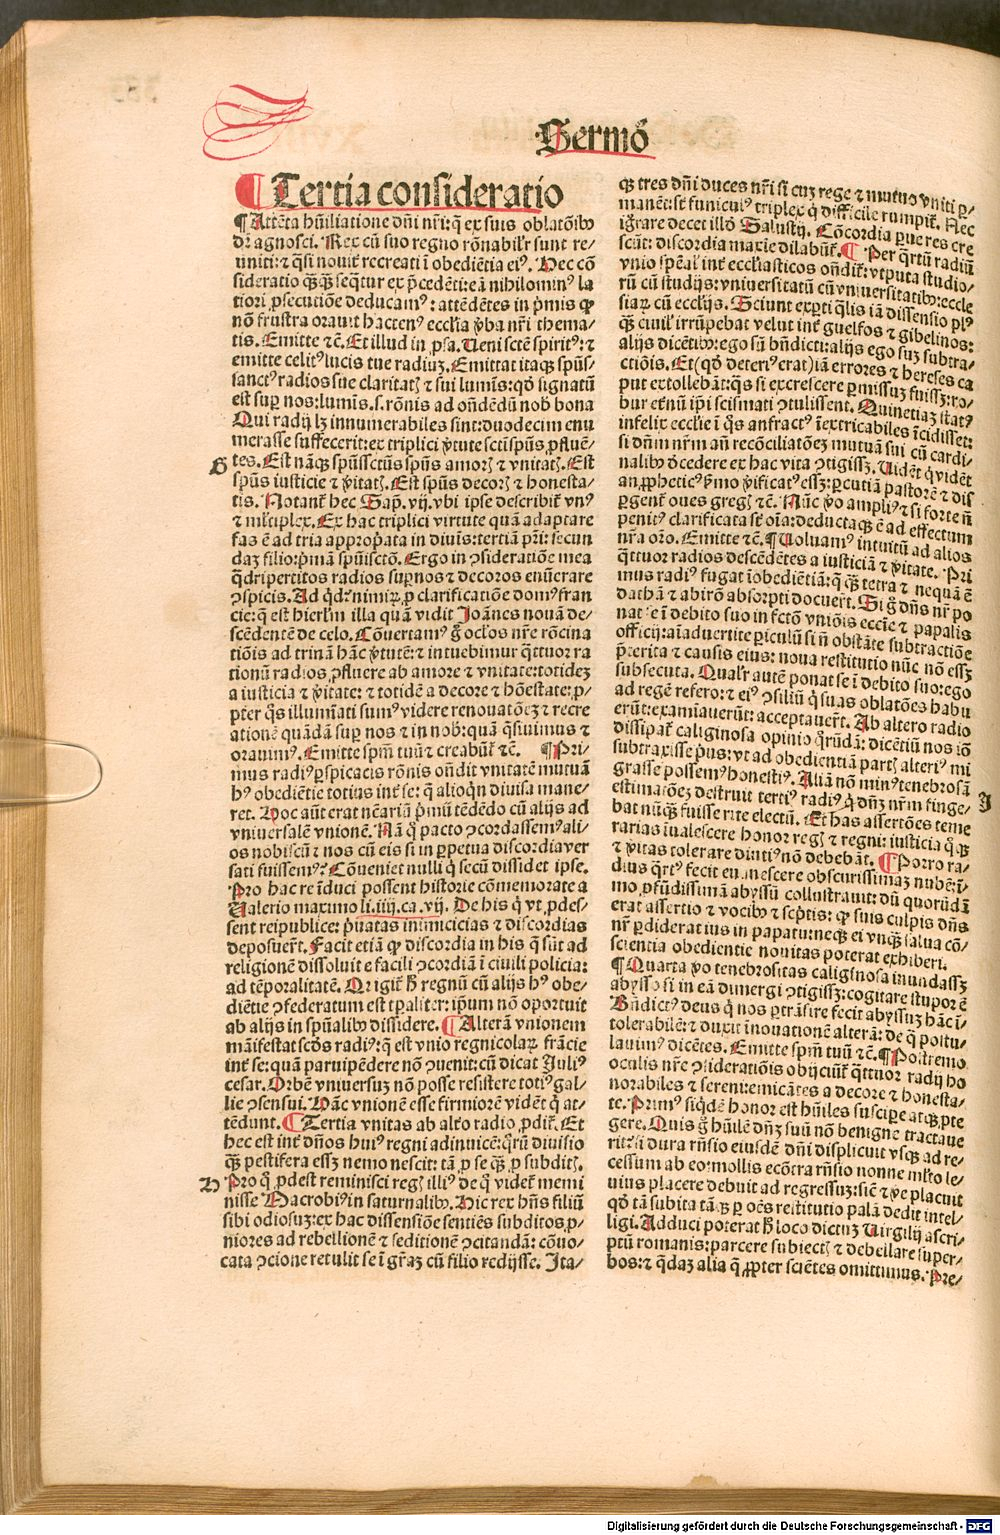 Sermo
¶ Tertia consideratio
¶ Attẽta hũiliatione dñi nr̃i: q̃ ex suis oblatõibꝰ
dr̃ agnosci. Rex cũ suo regno rõnabilr̃ sunt re/
uniti: ⁊ q̃si nouit̃ recreati ĩ obediẽtia eiꝰ. Hec cõ
sideratio q̃ꝙ̃ seq̃tur ex p̃cedẽti: eã nihilominꝰ la
tiori ꝓsecutiõe deducamꝰ: attẽdẽtes in p̃mis ꝙ
nõ frustra orauit hactenꝰ eccl̃ia ꝟba nr̃i thema/
tis. Emitte ⁊c̃. Et illud in ps̃a. Ueni sctẽ spiritꝰ: ⁊
emitte celitꝰ lucis tue radiuꝫ. Emittat itaqꝫ sp̃ũs/
sanctꝰ radios sue claritatꝭ ⁊ sui lumĩs: qd̃ signatũ
est sup̱ nos: lumĩs .s. rõnis ad oñdẽdũ nob̃ bona
Qui radij lꝫ innumerabiles sint: duodecim enu
merasse suffecerit: ex triplici ꝟtute scti sp̃ũs ꝓfluẽ/
G
tes. Est nãqꝫ sp̃ũssctũs sp̃ũs amorꝭ ⁊ vnitatꝭ. Est
sp̃ũs iusticie ⁊ ꝟitatꝭ. Est sp̃ũs decorꝭ ⁊ honesta/
tis. Notant̃ hec Sap̃. vij. vbi ipse describit̃ vnꝰ
⁊ mĩtiplex. Ex hac triplici virtute quã adaptare
fas ẽ ad tria approp̃ata in diuis: tertiã pr̃i: secun
daꝫ filio: p̃mã sp̃uisctõ. Ergo in ɔsideratiõe mea
q̃dripertitos radios sup̱ nos ⁊ decoros enũerare
ɔspicis. Ad qd̃? nimiꝝ ꝓ clarificatiõe domꝰ fran
cie: q̃ est hierl̃m illa quã vidit Joãnes nouã de/
scẽdentẽ de celo. Cõuertamꝰ g̃ ocl̃os nr̃e rõcina
tiõis ad trinã hãc ꝟtutẽ: ⁊ intuebimur q̃ttuor ra
tionũ radios ꝓfluere ab amore ⁊ vnitate: totideꝫ
a iusticia ⁊ ꝟitate: ⁊ totidẽ a decore ⁊ hõestate: ꝓ/
pter q̃s illumĩati sumꝰ videre renouatõeꝫ ⁊ recre
ationẽ quãdã sup̱ nos ⁊ in nob̃: quã q̃siuimus ⁊
orauimꝰ. Emitte spm̃ tuũ ⁊ creabũt̃ ⁊c̃. ¶ Pri/
mus radiꝰ ꝑspicacis rõnis oñdit vnitatẽ mutuã
hꝰ obediẽtie totius int̃ se: q̃ alioq̃n diuisa mane/
ret. Hoc aũt erat nẽariũ p̃mũ tẽdẽdo cũ alijs ad
vniuersalẽ vnionẽ. Nã q̃ pacto ɔcordassemꝰ ali/
os nobiscũ ⁊ nos cũ eis si in ꝑpetua discordia ver
sati fuissemꝰ? Cõueniet nulli q̃ secũ dissidet ipse.
Pro hac re ĩduci possent historie cõmemorate a
Ualerio maximo li. iiij. ca. vij. De his q̃ vt ꝓdes/
sent reipublice: p̃uatas inimicicias ⁊ discordias
deposuer̃t. Facit etiã ꝙ discordia in his q̃ sũt ad
religionẽ dissoluit e facili ɔcordiã ĩ ciuili policia:
ad tẽporalitatẽ. Origit̃ h̃ regnũ cũ alijs hꝰ obe/
diẽtie ɔfederatum est tꝑalĩter: ip̃um nõ oportuit
ab alijs in sp̃ualibꝰ dissidere. ¶ Alterã vnionem
mãifestat scd̃s radiꝰ: q̃ est vnio regnicolaꝝ frãcie
int̃ se: quã paruipẽdere nõ ɔuenit: cũ dicat Juliꝰ
cesar. Orbẽ vniuersuꝫ nõ posse resistere totiꝰ gal/
lie ɔsensui. Hãc vnionẽ esse firmiorẽ vidẽt q̃ at/
tẽdunt. ¶ Tertia vnitas ab alt̃o radio ꝓdit̃. Et
hec est int̃ dños huiꝰ regni adinuicẽ: q̃rũ diuisio
q̃ꝙ̃ pestifera esset nemo nescit: tã ꝓ se q̃ꝙ̃ ꝓ subditꝭ.
H
Pro q̃ ꝓdest reminisci regꝭ illiꝰ de q̃ videt̃ memi
nisse Macrobiꝰ in saturnalibꝰ. Hic rex hñs filiũ
sibi odiosuꝫ: ex hac dissensiõe sentiẽs subditos ꝓ/
niores ad rebellionẽ ⁊ seditionẽ ɔcitandã: cõuo/
cata ɔcione retulit se ĩ gr̃aꝫ cũ filio redijsse. Ita/
qꝫ tres dñi duces nr̃i si cuꝫ rege ⁊ mutuo vniti ꝑ/
manẽt: fit funiculꝰ triplex q̃ difficile rumpit̃. Nec
igr̃are decet illd̃ Salustij. Cõcordia ꝑue res cre
scũt: discordia maxĩe dilabũt̃. ¶ Per q̃rtũ radiũ
vnio sp̃ẽal int̃ eccl̃iasticos oñdit̃: vtputa studio/
rũ cũ studijs: vniuersitatũ cũ vniuersitatibꝰ: eccle
siaꝝ cũ eccl̃ijs. Sciunt exꝑti q̃lis iã dissensio plꝰ
q̃ꝙ̃ ciuil̃ irrũpebat velut int̃ guelfos ⁊ gibelinos:
alijs dicẽtibꝰ: ego sũ bñdicti: alijs ego suꝫ subtra/
ctiõis. Et (qd̃ deteriꝰ erat) iã errores ⁊ hereses ca
put extollebãt: q̃s si excrescere ꝑmissuꝫ fuissꝫ: ro/
bur et̃nũ ip̃i scismati ɔtulissent. Quinetiaꝫ statꝰ
infelix ecclie ĩ q̃s anfractꝰ ĩextricabiles ĩcidisset:
si dñm nr̃m añ recõciliatõeꝫ mutuã sui cũ cardi/
nalibꝰ ɔ̃cedere ex hac vita ɔtigissꝫ. Uidẽt q̃ vidẽt
an ꝓpheticꝰ s̃mo ꝟificatꝰ essꝫ: ꝑcutiã pastorẽ ⁊ dis
ꝑgent̃ oues gregꝭ ⁊c̃. Nũc ꝟo ampliꝰ ⁊ si forte ñ
penitꝰ clarificata st̃ oĩa: deductaqꝫ ẽ ad effectum
nr̃a or̃o. Emitte ⁊c̃. ¶ Uoluamꝰ intuitũ ad alios
q̃ttuor radios descẽdẽtes a iusticiã ⁊ ꝟitate. Pri
mus radiꝰ fugat ĩobediẽtiã: q̃ ꝙ̃ tetra ⁊ nequã ẽ
dathã ⁊ abirõ absorpti docuer̃t. Si g̃ dñs nr̃ po
nat se ĩ debito suo in fctõ vniõis eccĩe ⁊ papalis
officij: aĩaduertite ꝑiculũ si ñ obstãte subtractiõe
p̃terita ⁊ causis eius: noua restitutio nũc nõ essꝫ
subsecuta. Qualr̃ autẽ ponat se ĩ debito suo: ego
ad regẽ refero: ⁊ eiꝰ ɔsiliũ q̃ suas oblatões habu
erũt: examĩauerũt: acceptauer̃t. Ab altero radio
dissipat̃ caliginosa opinio q̃rũdã: dicẽtiũ nos iõ
subtraxisse p̃us: vt ad obedientiã partꝭ alteriꝰ mi
grasse possemꝰ honestiꝰ. Aliã nõ minꝰ tenebrosã
estimatõeꝫ destruit tertiꝰ radiꝰ q̃ dñꝫ nr̃m finge/
J
bat nũqꝫ̃ fuisse rite electũ. Et has assertões teme
rarias ĩualescere honor regꝭ ⁊ regni: iusticia q̃qꝫ
⁊ ꝟitas tolerare diutiꝰ nõ debebãt. ¶ Porro ra/
dius q̃rtꝰ fecit euanescere obscurissimaꝫ nubẽ: ĩ/
mo ꝓfũdissimã abyssũ collustrauit: dũ quorũdã
erat assertio ⁊ vocibꝰ ⁊ sc̃ptis: ꝙ suis culpis dñs
nr̃ ꝑdiderat ius in papatu: neqꝫ ei vnqꝫ̃ salua cõ/
scientia obedientie nouitas poterat exhiberi.
¶ Quarta ꝟo tenebrositas caliginosa inundassꝫ
abysso si in eã dimergi ɔtigissꝫ: cogitare stupor ẽ
Bñdictꝰ deus q̃ nos ꝑtrãsire fecit abyssuꝫ hãc ĩ/
tolerabilẽ: ⁊ duxit ĩnouationẽ alterã: de q̃ postu/
lauimꝰ dicẽtes. Emitte spm̃ tuũ ⁊c̃. ¶ Postremo
oculis nr̃e ɔsideratiõis obijciũt̃ q̃ttuor radij ho
norabiles ⁊ sereni: emicãtes a decore ⁊ honesta/
te. Primꝰ siq̃dẽ honor est hũiles suscipe atqꝫ ꝓte
gere. Quis g̃ hũilẽ dñꝫ suũ nõ benigne tractaue
rit? si dura rñsio eiusdẽ dñi displicuit vsqꝫ ad re/
cessum ab eo: mollis ecõtra rñsio nonne ml̃to le/
uius placere debuit ad regressuꝫ: sicẽ ⁊ ꝟe placuit
qd̃ tã subita tãqꝫ ꝑ oẽs restitutio palã dedit intel/
ligi. Adduci poterat h̃ loco dictuꝫ Uirgilij ascri/
ptũ romanis: parcere subiectꝭ ⁊ debellare super/
bos: ⁊ q̃daꝫ alia q̃ ꝓpter sciẽtes omittimus. Pre/
Digitalisierung gefördert durch die Deutsche Forschungsgemeinschaft - DFG